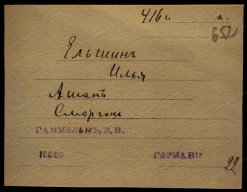 416 и п.
652
Ельшинъ
Илья
Ашапъ
Сморгонь
ГАММЕЛЬНЪ, Л, В.
ГЕРМАНІЯ
22